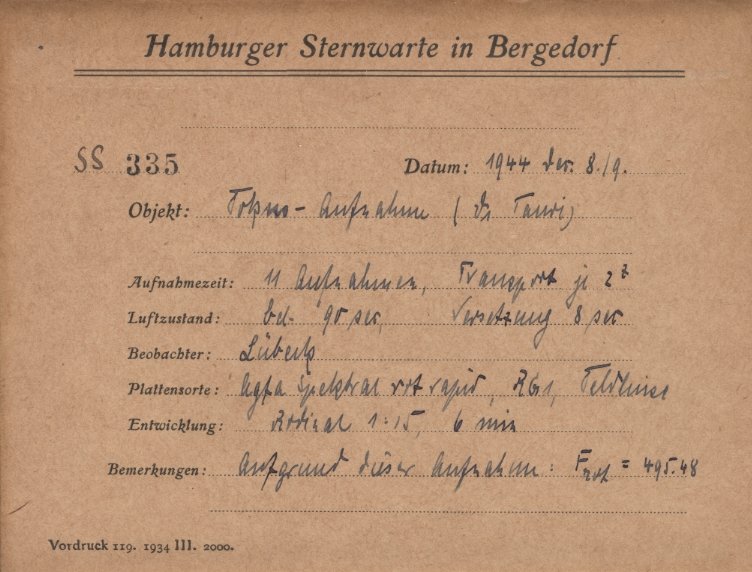 Hamburger Sternwarte in Bergedorf
SS 335 Datum: 1944 Dez. 8./9.
Objekt: Fokus-Aufnahme ( Tauri)
Aufnahmezeit: 11 Aufnahmen, Transport je 2
Luftzustand: bel. 90 sec, Versetzung 8 sec
Beobachter: Lübeck
Plattensorte: Agfa Spektral rot rapid, RG1, Feldlinse
Entwicklung: Rodinal 1:15, 6 min
Bemerkungen: Aufgrund dieser Aufnahme: Frot = 495.48
Vordruck 119. 1934 III. 2000.